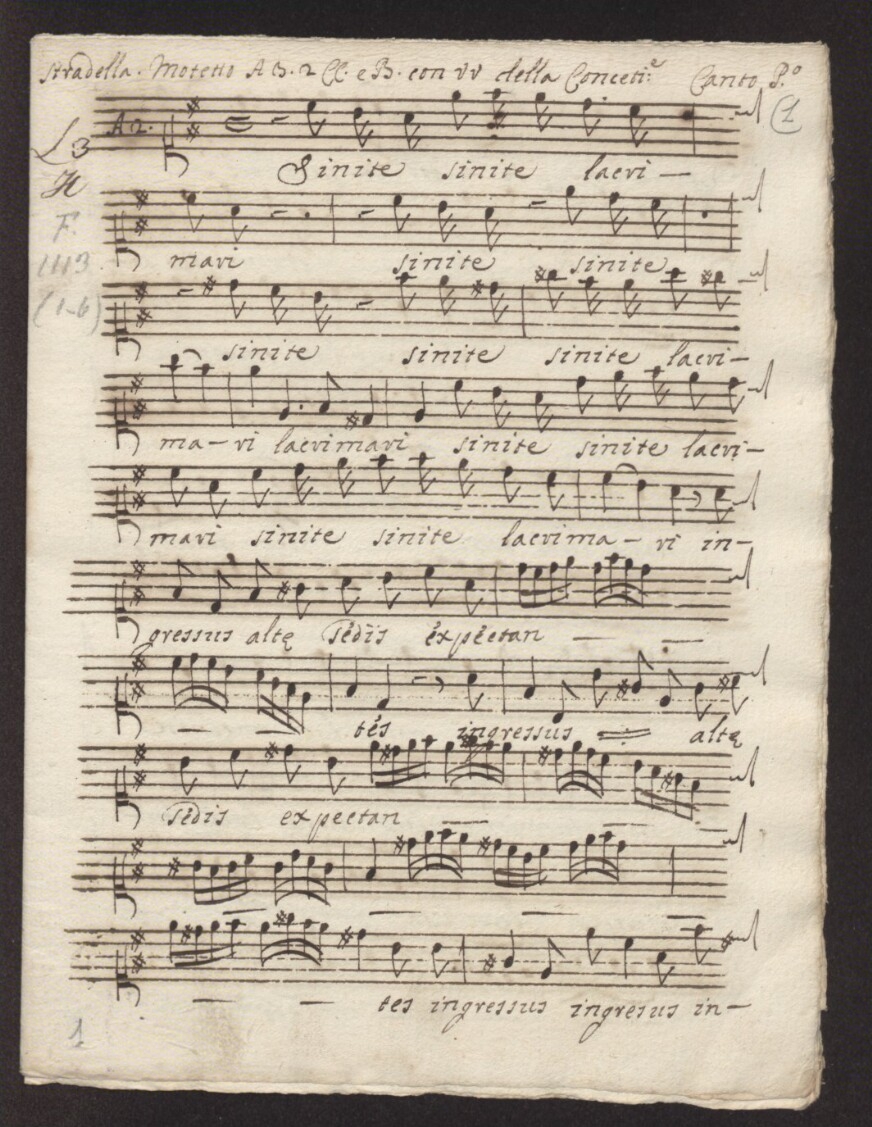 Stradella. Motetto A 3. 2 CC. e B. con VV della Conceti.e Canto P.o
(1
A 2.
L 3
Sinite sinite lacri —
H
F.
1113
(1-6)
mavi sinite sinite
sinite sinite sinite lacri—
ma—vi lacrimavi sinite sinite lacri—
mavi sinite sinite lacrima—vi in—
gressus altę sedis expectan — —
— — tes ingressus = altę
sedis expectan — —
— — — —
— — tes ingressus ingresus in—
1